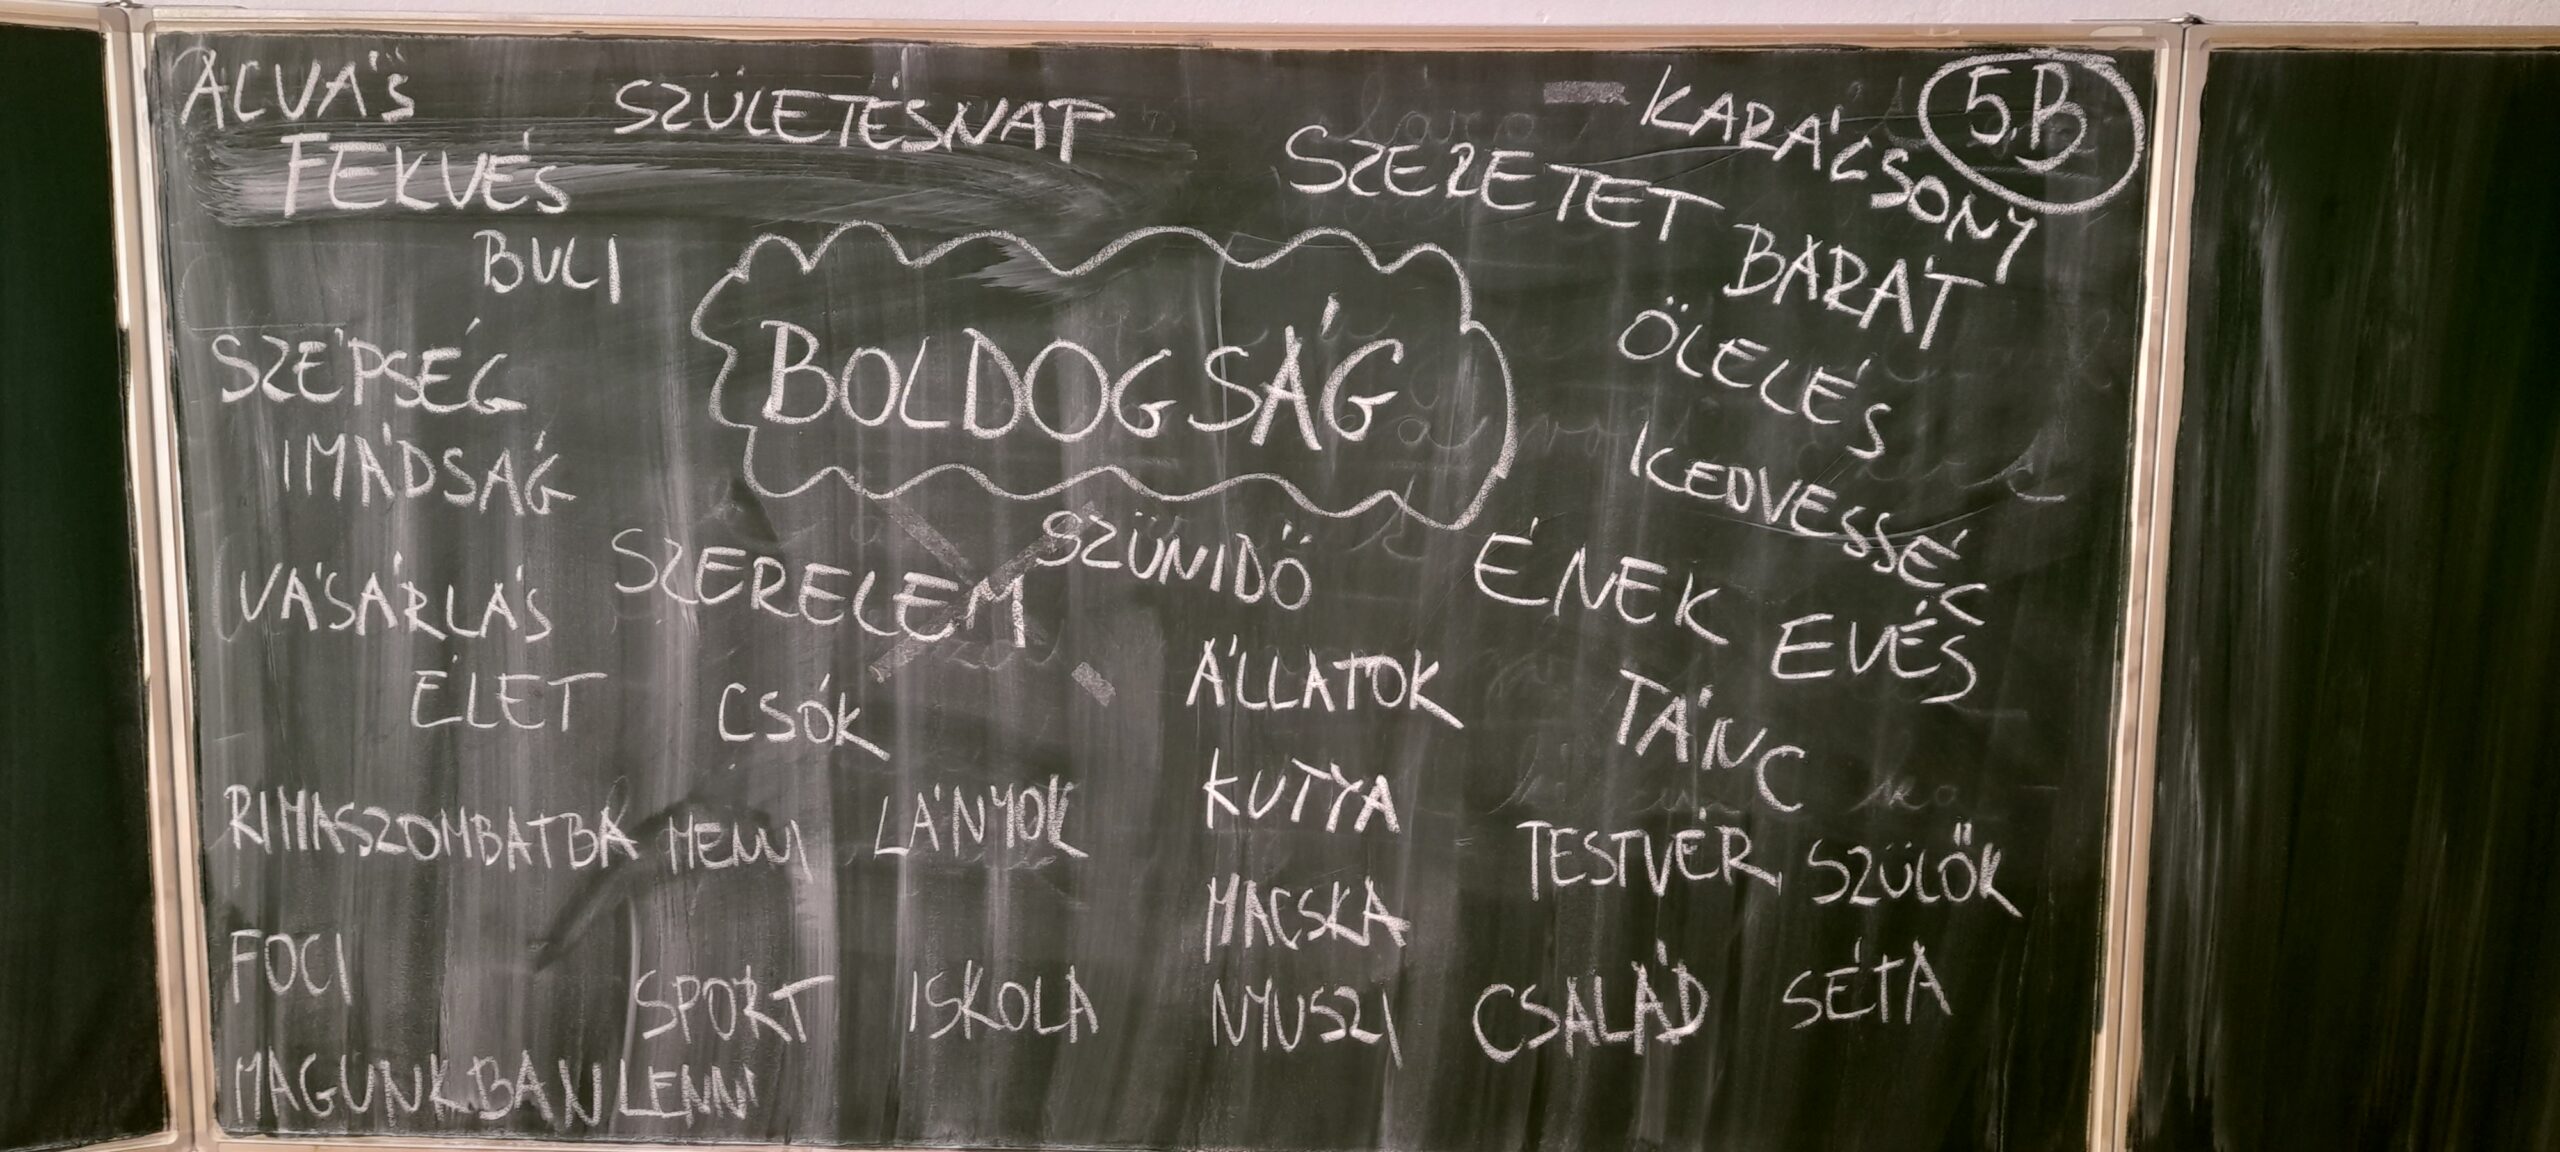 ALVÁS
SZÜLETÉSNAP
KARÁCSONY
5.B
FEKVÉS
SZERETET
BULI
BARÁT
BOLDOGSÁG
ÖLELÉS
SZÉPSÉG
IMÁDSÁG
KEDVESSÉG
VÁSÁRLÁS
SZERELEM
SZÜNIDŐ
ÉNEK
EVÉS
ÉLET
CSÓK
ÁLLATOK
TÁNC
RIMASZOMBATBA MENNI
LÁNYOK
KUTYA
TESTVÉR
SZÜLŐK
MACSKA
FOCI
SPORT
ISKOLA
NYUSZI
CSALÁD
SÉTA
MAGUNKBAN LENNI